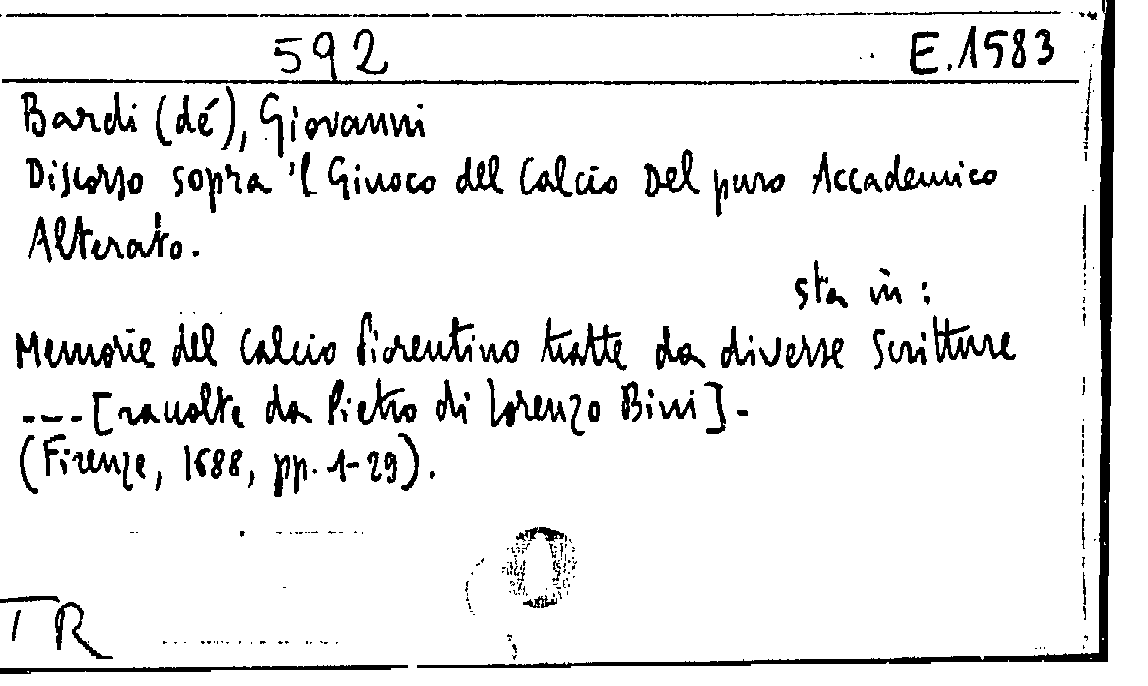 592 E.1583
Bardi (dé), Giovanni
Discorso sopra 'l Giuoco del Calcio Del puro Accademico
Alterato.
sta in:
Memorie del Calcio fiorentino tratte da diverse Scritture
---[racolte da Pietro di Lorenzo Bini]-
(Firenze, 1688, pp. 1-29).
TR